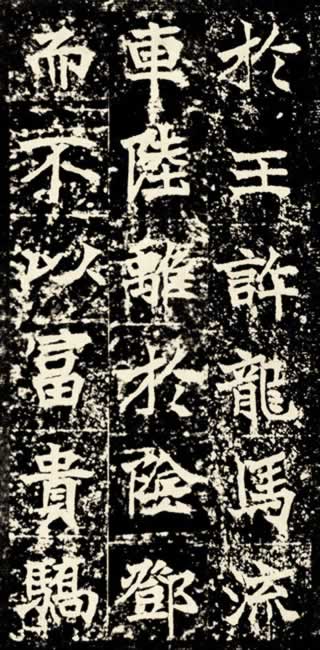 於王許龍馬流
車陸離於陰鄧
而不以富貴驕